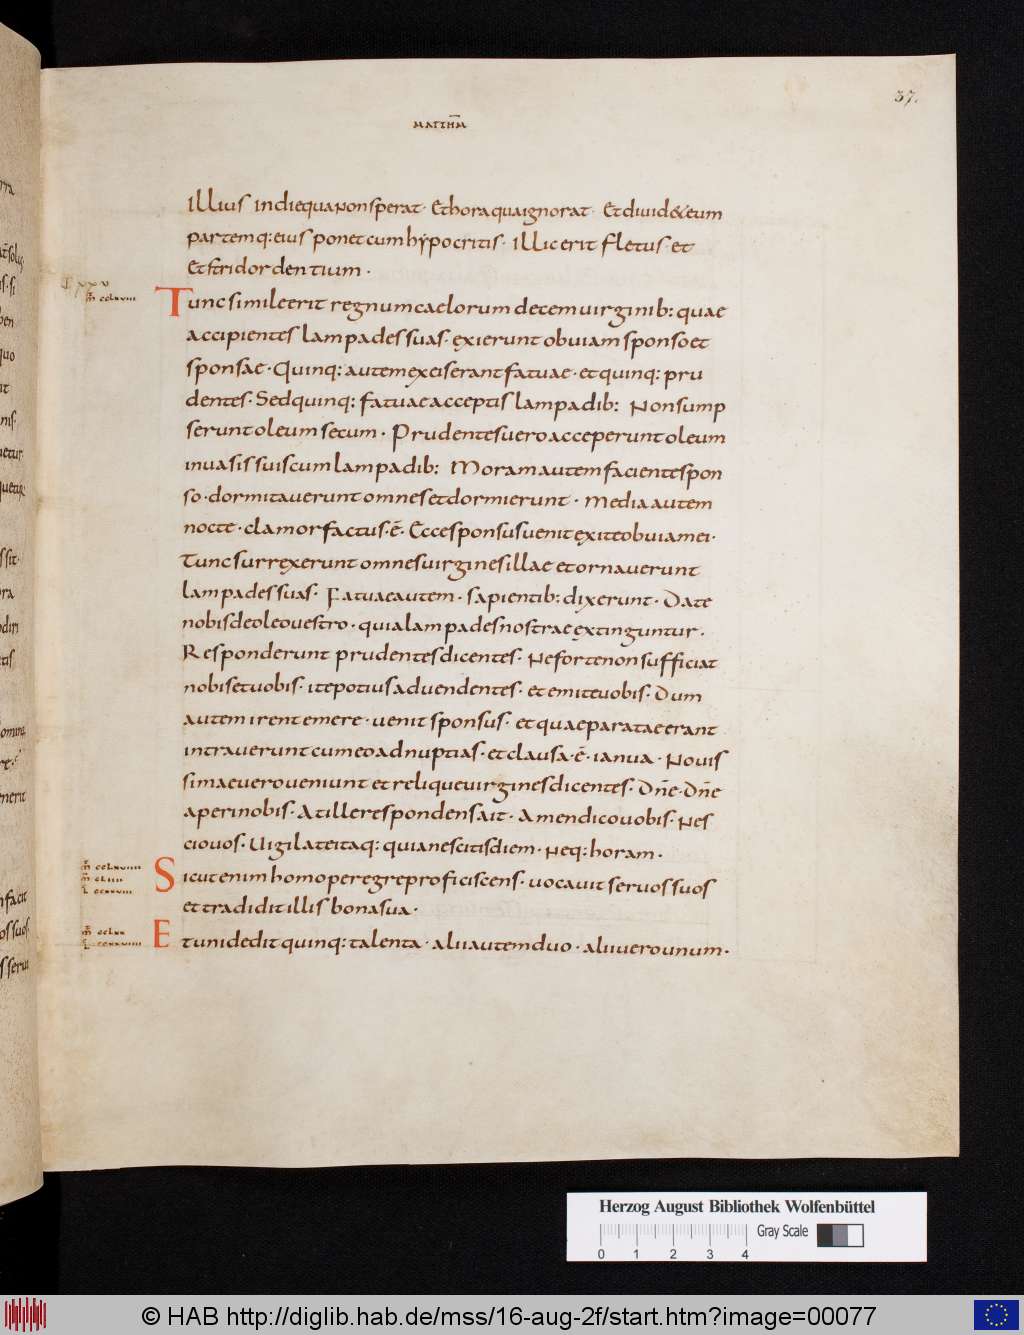 37.
MATTHM
illius in die qua non sperat · Et hora qua ignorat · Et dividet eum
partemq: eius ponet cum hypocritis · illic erit fletus · et
Et stridor dentium ·
m̄ cclxviii
Tunc simile erit regnum caelorum decem virginib: quae
accipientes lampades suas · exierunt obuiam sponso et
sponsae · Quinq: autem ex eis erant fatuae · et quinq: pru
dentes · Sed quinq: fatuae acceptis lampadib: Non sump
serunt oleum secum · Prudentes uero acceperunt oleum
in uasis suis cum lampadib: Moram autem faciente spon
so · dormitauerunt omnes et dormierunt · Media autem
nocte · clamor factus · ē · Ecce sponsus uenit exite obuiam ei ·
Tunc surrexerunt omnes uirgines illae et ornauerunt
lampades suas · Fatuae autem · sapientib: dixerunt · Date
nobis de oleo uestro · quia lampades nostrae extinguntur ·
Responderunt prudentes dicentes · Ne forte non sufficiat
nobis et uobis · ite potius ad uendentes · et emite uobis · Dum
autem irent emere · uenit sponsus · et quae paratae erant
intrauerunt cum eo ad nuptias · et clausa · ē · ianua · Nouis
simae uero ueniunt et relique uirgines dicentes · Dn̄e · Dn̄e
aperi nobis · At ille respondens ait · Amen dico uobis · Nes
cio uos · Uigilate itaq: quia nescitis diem · Neq: horam ·
Sicut enim homo peregre proficiscens · uocauit seruos suos
et tradidit illis bona sua ·
Et uni dedit quinq: talenta · alii autem duo · alii uero unum ·
Herzog August Bibliothek Wolfenbüttel
Gray Scale
0 1 2 3 4
© HAB http://diglib.hab.de/mss/16-aug-2f/start.htm?image=00077